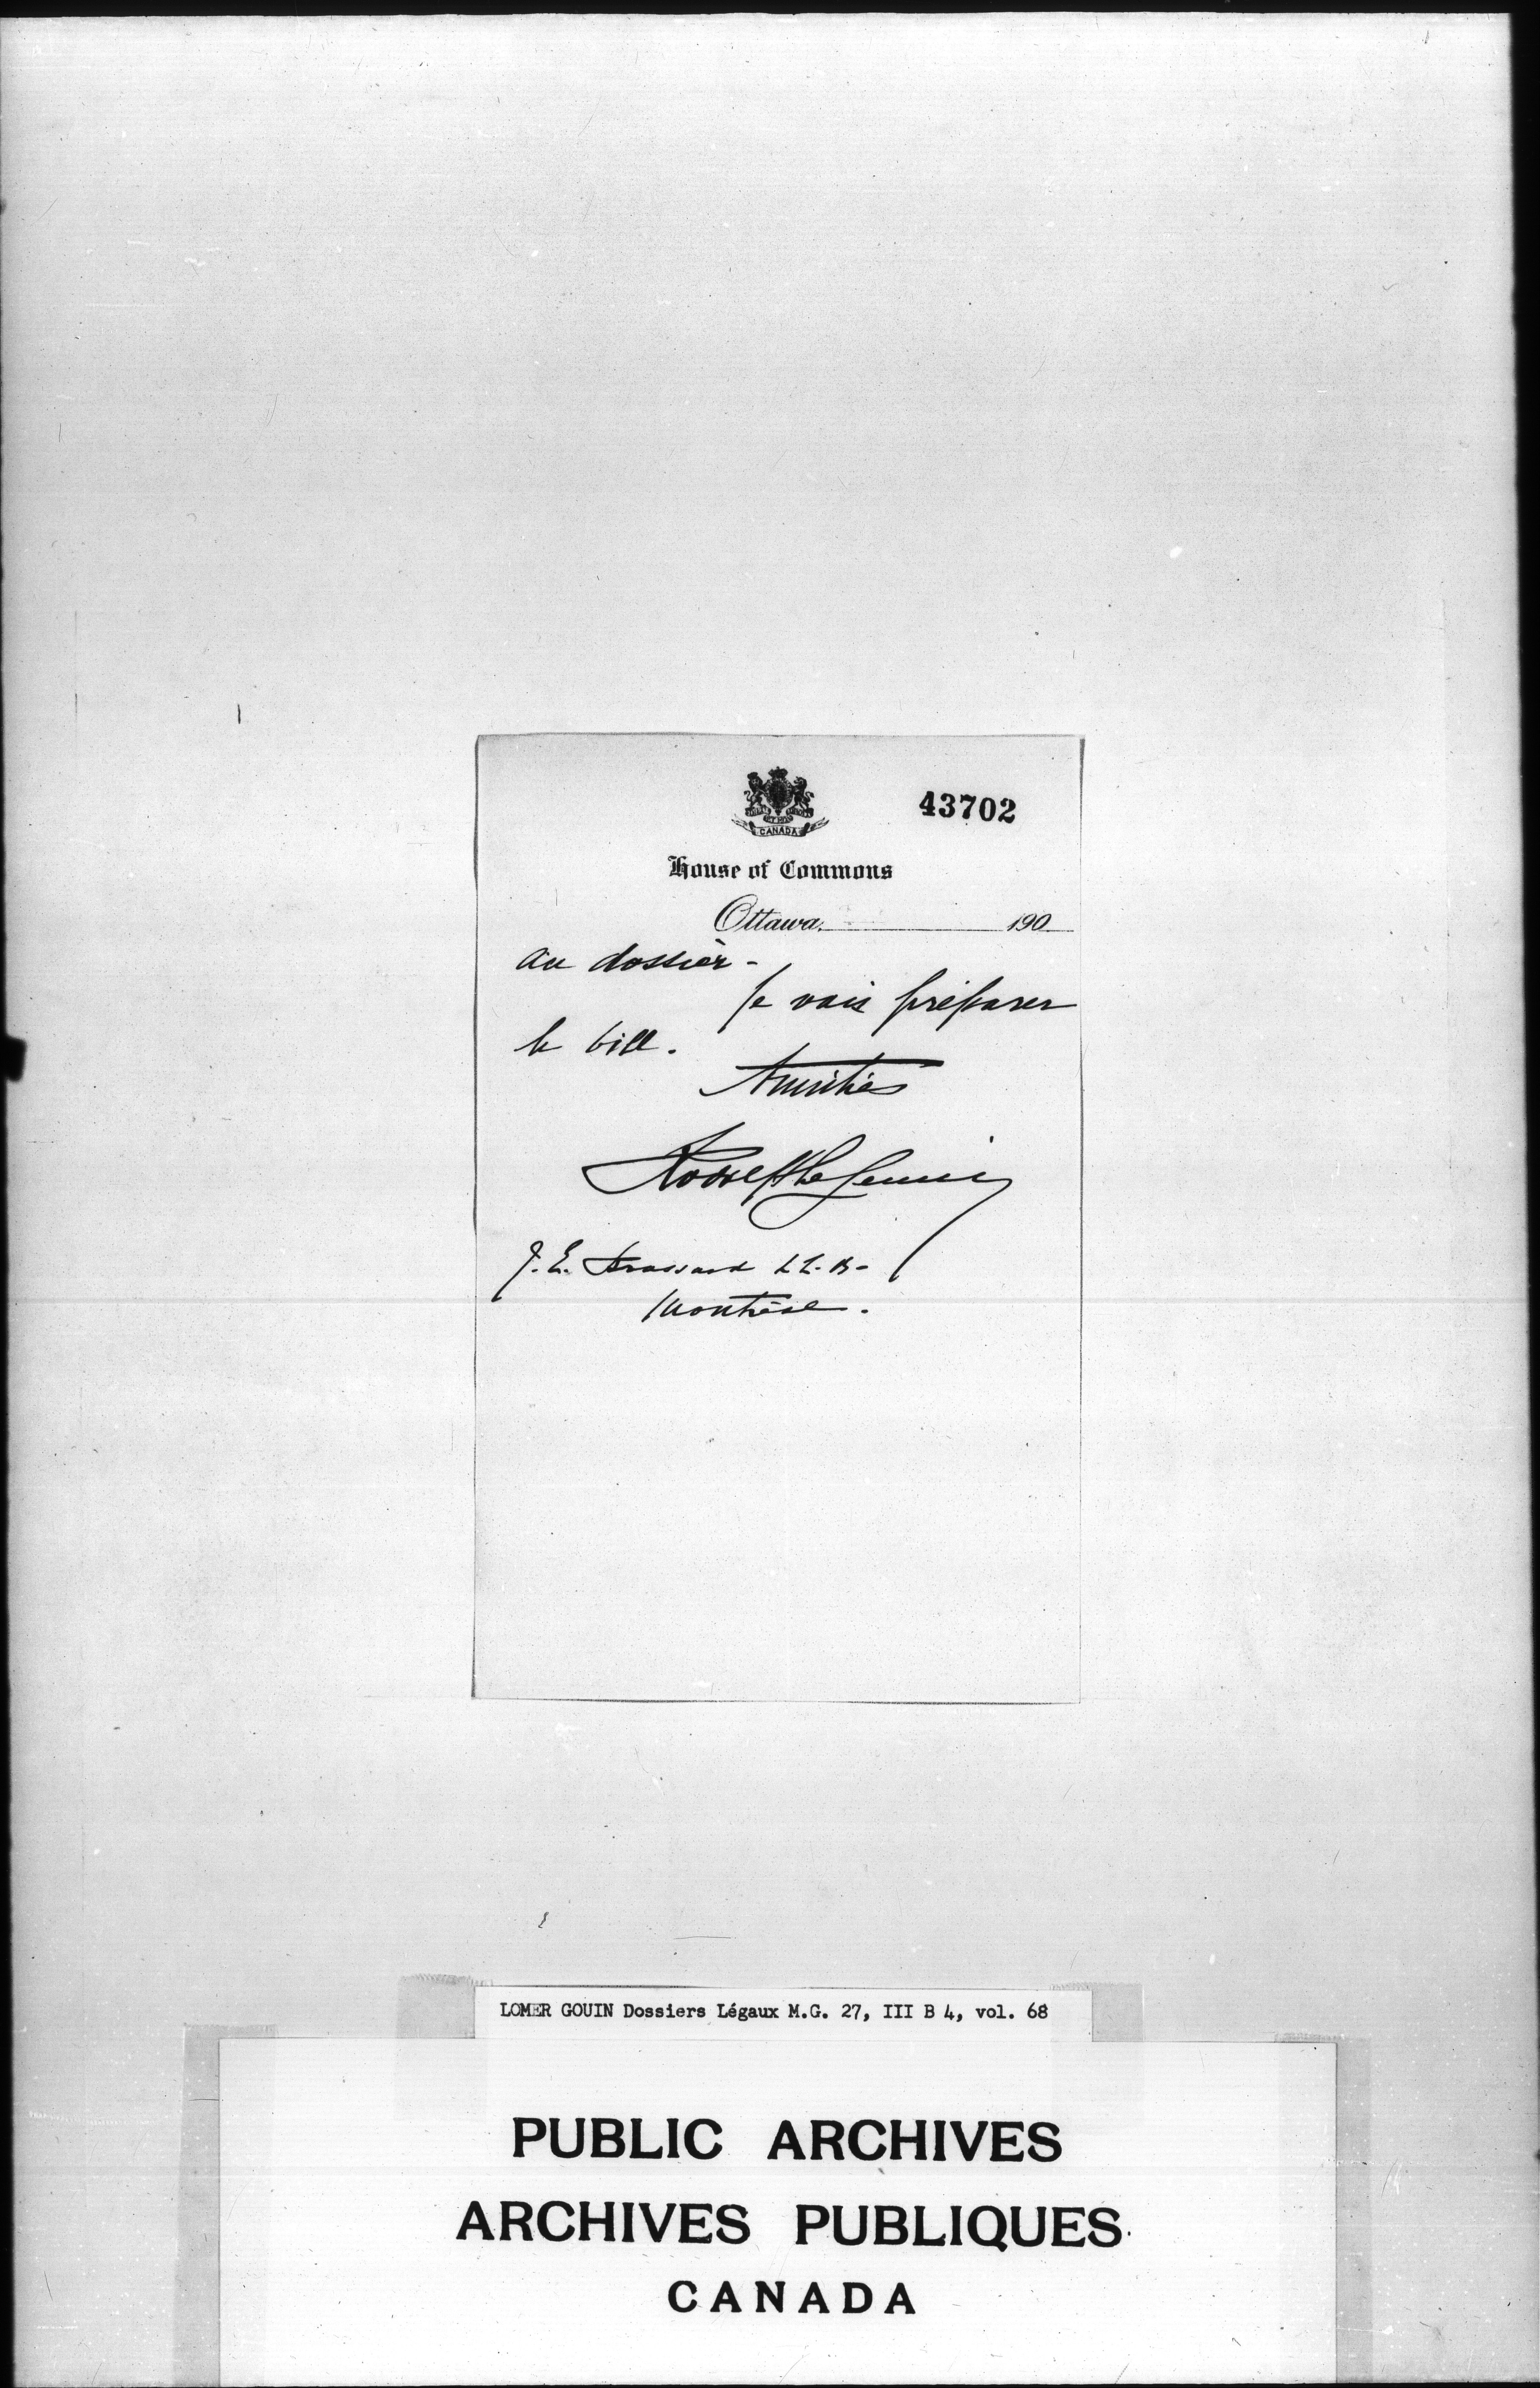 43702
CANADA
House of Commons
Ottawa, 190
au dossier -
Je vais préparer
le bill.
Amitiés
Rodolphe Lemieux
J. E. Brassard LL. B-
Montréal.
LOMER GOUIN Dossiers Légaux M.G. 27, III B 4, vol. 68
PUBLIC ARCHIVES
ARCHIVES PUBLIQUES
CANADA